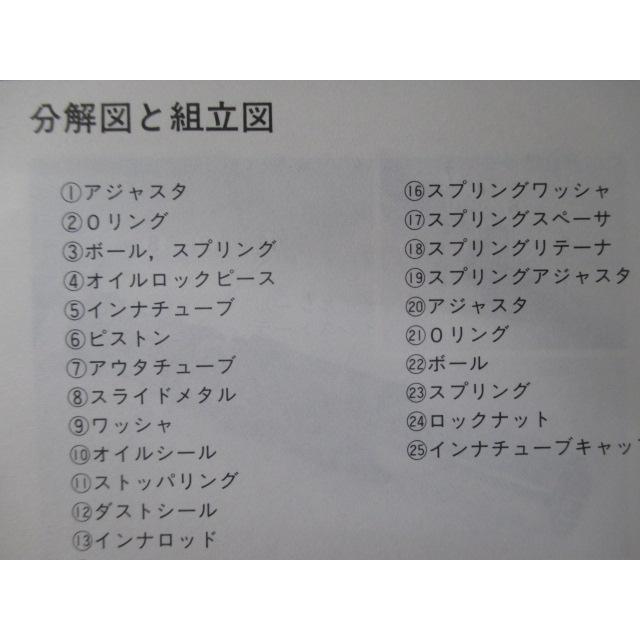 分解図と組立図
①アジャスタ
②Oリング
③ボール，スプリング
④オイルロックピース
⑤インナチューブ
⑥ピストン
⑦アウタチューブ
⑧スライドメタル
⑨ワッシャ
⑩オイルシール
⑪ストッパリング
⑫ダストシール
⑬インナロッド
⑯スプリングワッシャ
⑰スプリングスペーサ
⑱スプリングリテーナ
⑲スプリングアジャスタ
⑳アジャスタ
㉑Oリング
㉒ボール
㉓スプリング
㉔ロックナット
㉕インナチューブキャップ